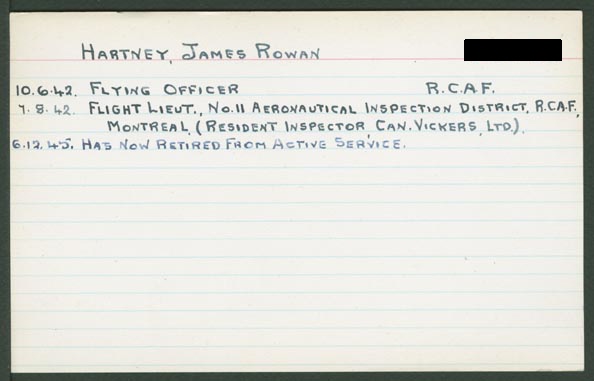 HARTNEY, JAMES ROWAN
10.6.42. FLYING OFFICER R.C.A.F.
7.8.42. FLIGHT LIEUT., No.11 AERONAUTICAL INSPECTION DISTRICT, R.C.A.F.,
MONTREAL, (RESIDENT INSPECTOR, CAN. VICKERS, LTD.).
6.12.45. HAS NOW RETIRED FROM ACTIVE SERVICE.